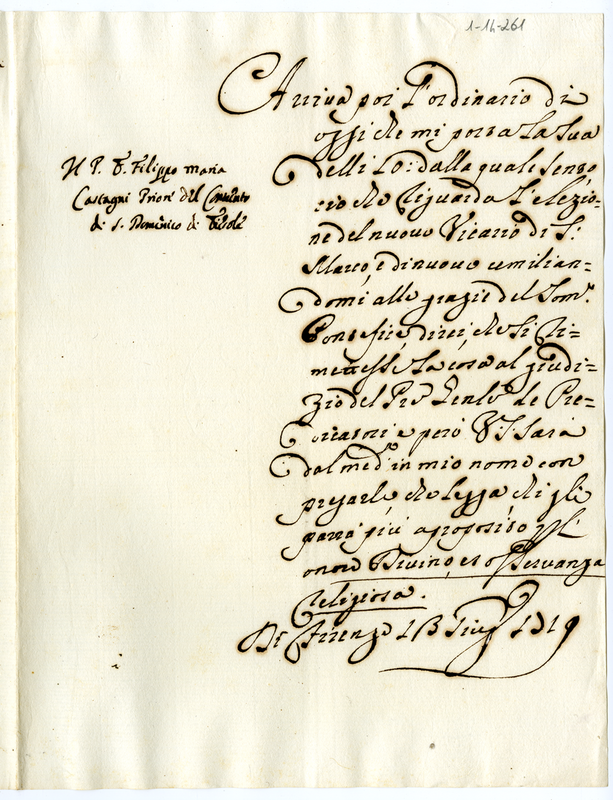 1-14-261
Arriva poi l'ordinario di
oggi che mi porta la sua
delli 10: dalla quale sento
ciò che riguarda l'elezio=
ne del nuovo Vicario di S:
Marco, e di nuovo umilian=
domi alle grazie del Som.
Pontefice, direi, che si ri=
mettesse la cosa al giudi=
zio del Pre Genle de Pre=
dicatori e però V. S. sarà
dal med.o in mio nome con
pregarlo, che elegga chi gli
parrà più a proposito
onore Divino, et osservanza
Religiosa.
Di Firenze 13 1719
Il P. F. Filippo Maria
Castagni Priore del Convento
di S. Domenico di Fiesole